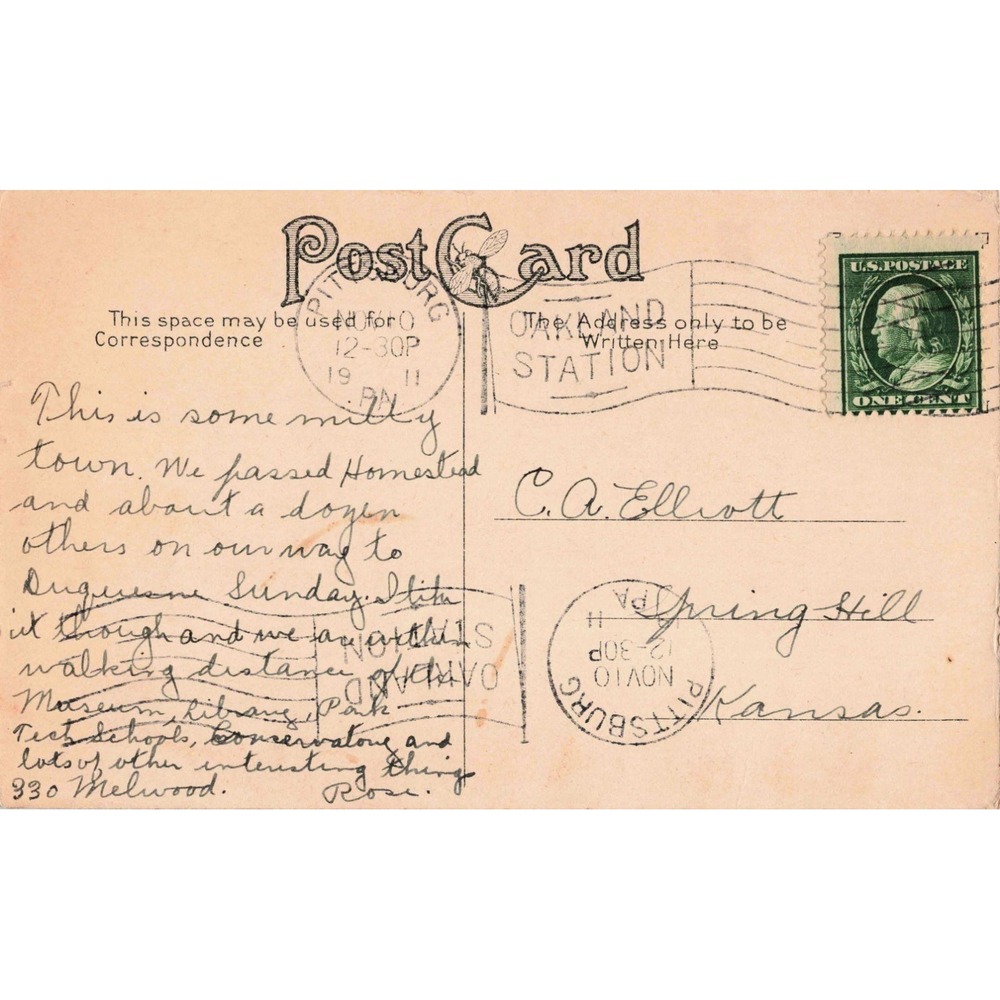 Post Card
This space may be used for
Correspondence
The Address only to be
Written Here
PITTSBURG
NOV 10
12-30P
19 11
PA
OAKLAND
STATION
U.S. POSTAGE
ONE CENT
This is some milly
town. We passed Homestead
and about a dozen
others on our way to
Duquesne Sunday. I like
it though and we are within
walking distance of the
Museum, Library, Park
Tech Schools, Conservatory and
lots of other interesting things
330 Melwood. Rose.
C. A. Elliott
Spring Hill
Kansas.
OAKLAND
STATION
PITTSBURG
NOV 10
12-30P
11
PA